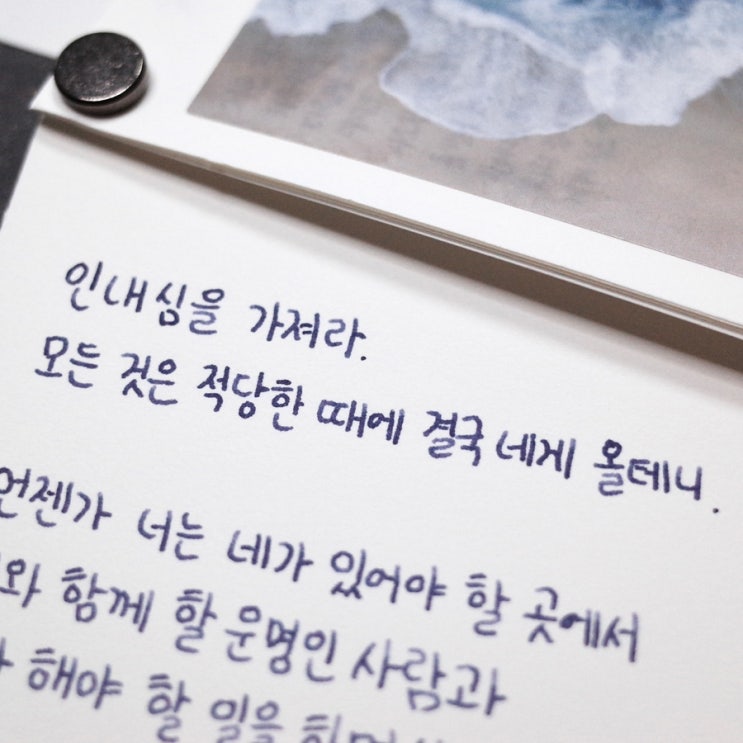 인내심을 가져라.
모든 것은 적당한 때에 결국 네게 올테니.
언젠가 너는 네가 있어야 할 곳에서
함께 할 운명인 사람과
해야 할 일을